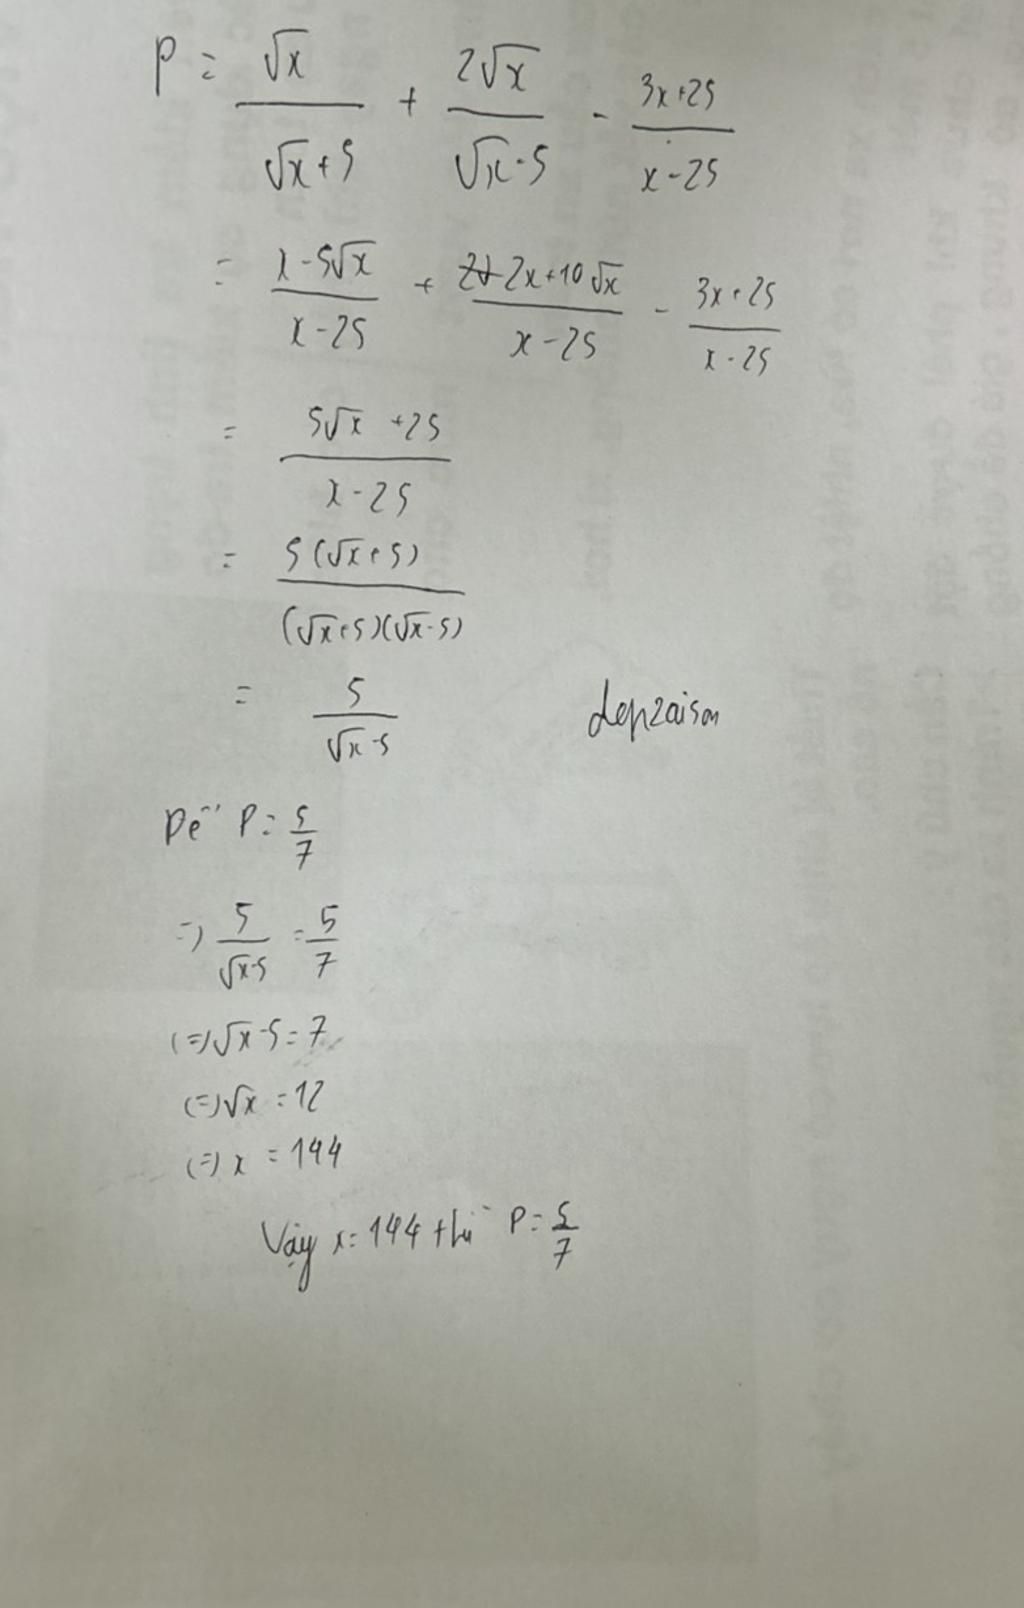 P = √x/(√x+5) + 2√x/(√x-5) - (3x+25)/(x-25)
= (x-5√x)/(x-25) + (2x+10√x)/(x-25) - (3x+25)/(x-25)
= (5√x+25)/(x-25)
= 5(√x+5)/((√x+5)(√x-5))
= 5/(√x-5)
depzaison
Để P = 5/7
=) 5/(√x-5) = 5/7
(=) √x-5 = 7
(=) √x = 12
(=) x = 144
Vậy x = 144 thì P = 5/7